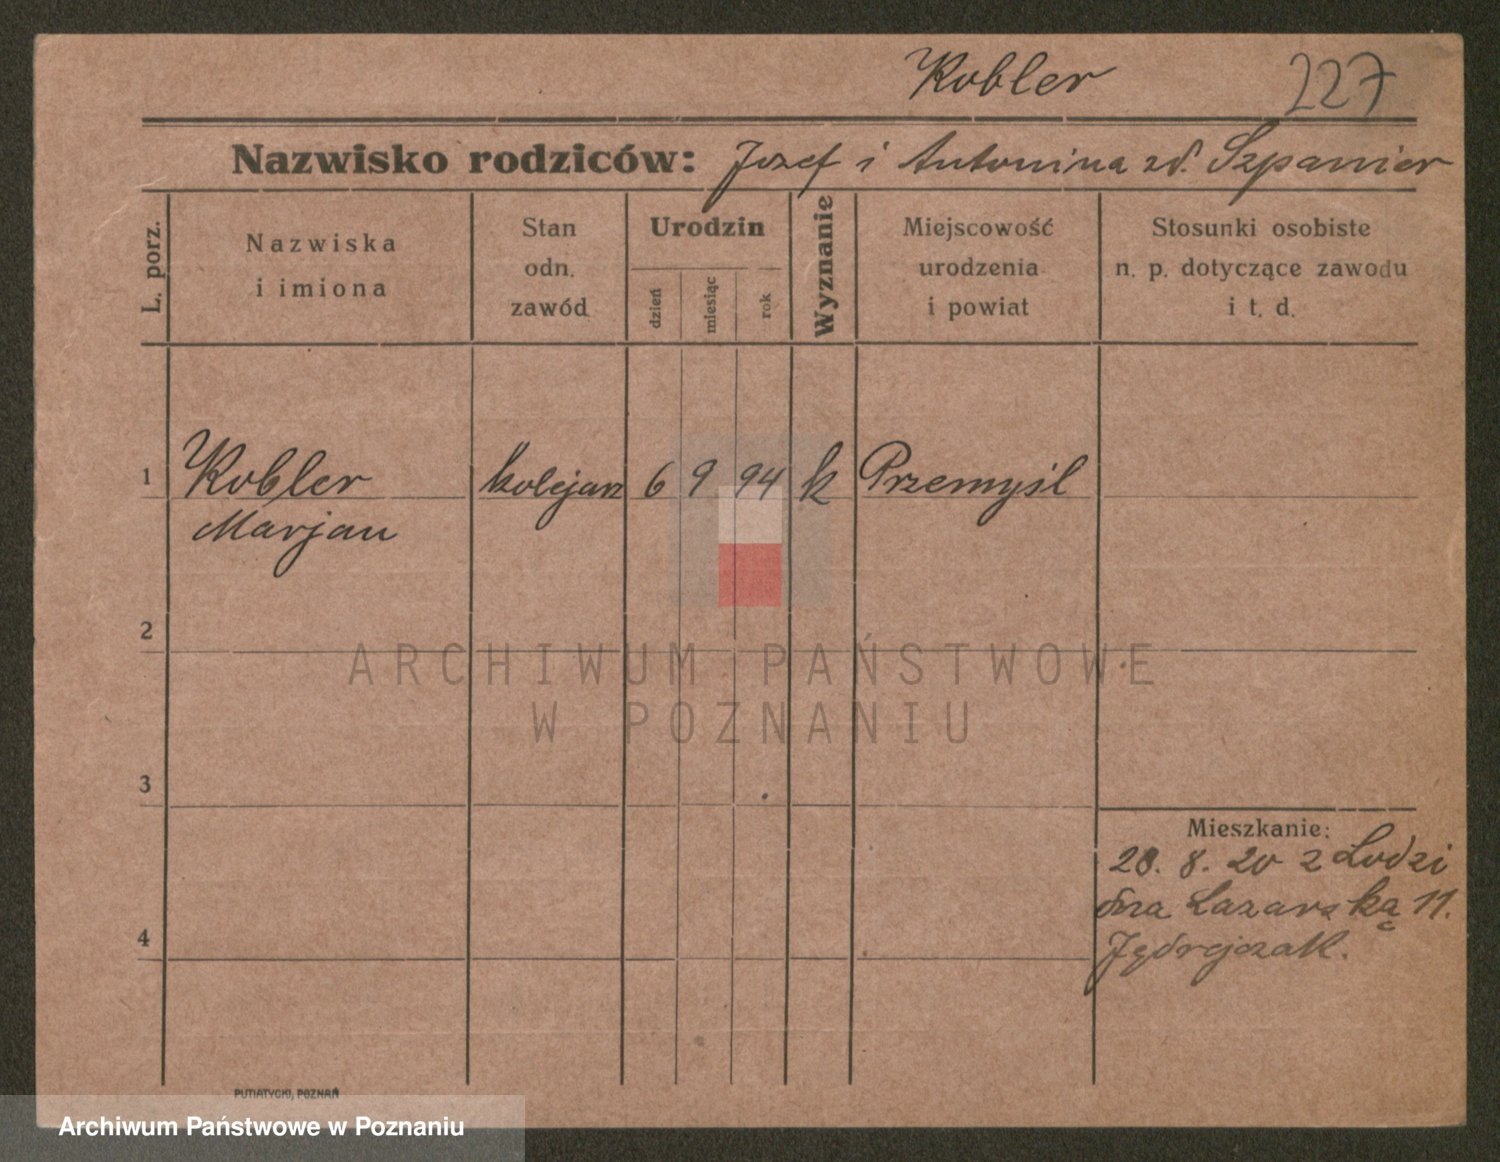 Kobler 227
Nazwisko rodziców: Jozef i Antonina zd. Szpanier
L. porz.
Nazwiska
i imiona
Stan
odn.
zawód
Urodzin
dzień
miesiąc
rok
Wyznanie
Miejscowość
urodzenia
i powiat
Stosunki osobiste
n. p. dotyczące zawodu
i t. d.
1 Kobler kolejarz 6 9 94 k Przemyśl
Marjan
2
ARCHIWUM PAŃSTWOWE
W POZNANIU
3
Mieszkanie:
28. 8. 20 z Lodzi
na Lazarską 11.
4
Jędrejczak.
PUTIATYCKI, POZNAŃ
Archiwum Państwowe w Poznaniu